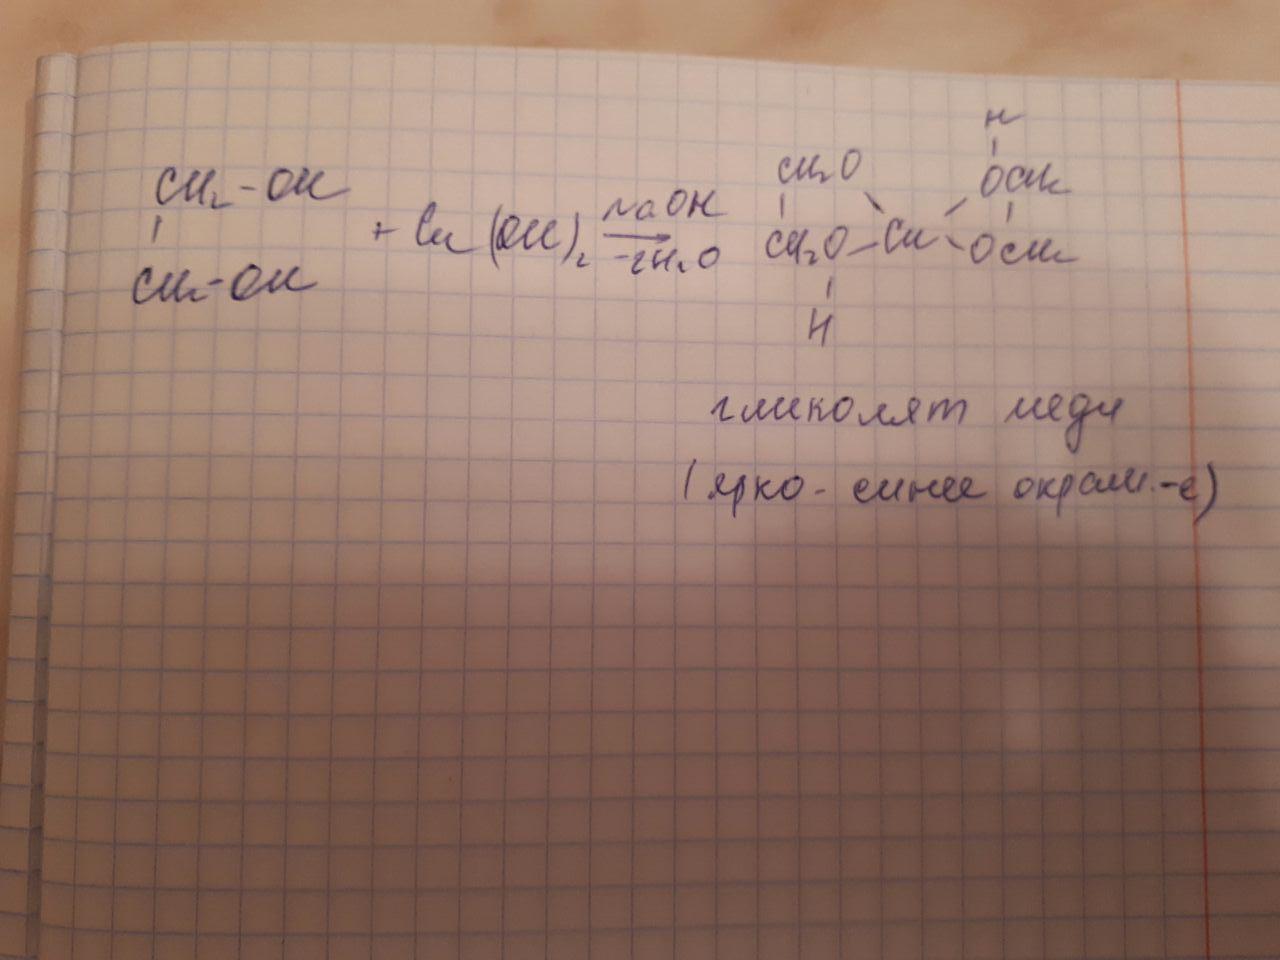 CH₂-OH
CH₂-OH
+ Cu(OH)₂
NaOH
-2H₂O
CH₂O
CH₂O-Cu
H
H
OCH₂
OCH₂
гликолят меди
(ярко-синее окраш.-е)